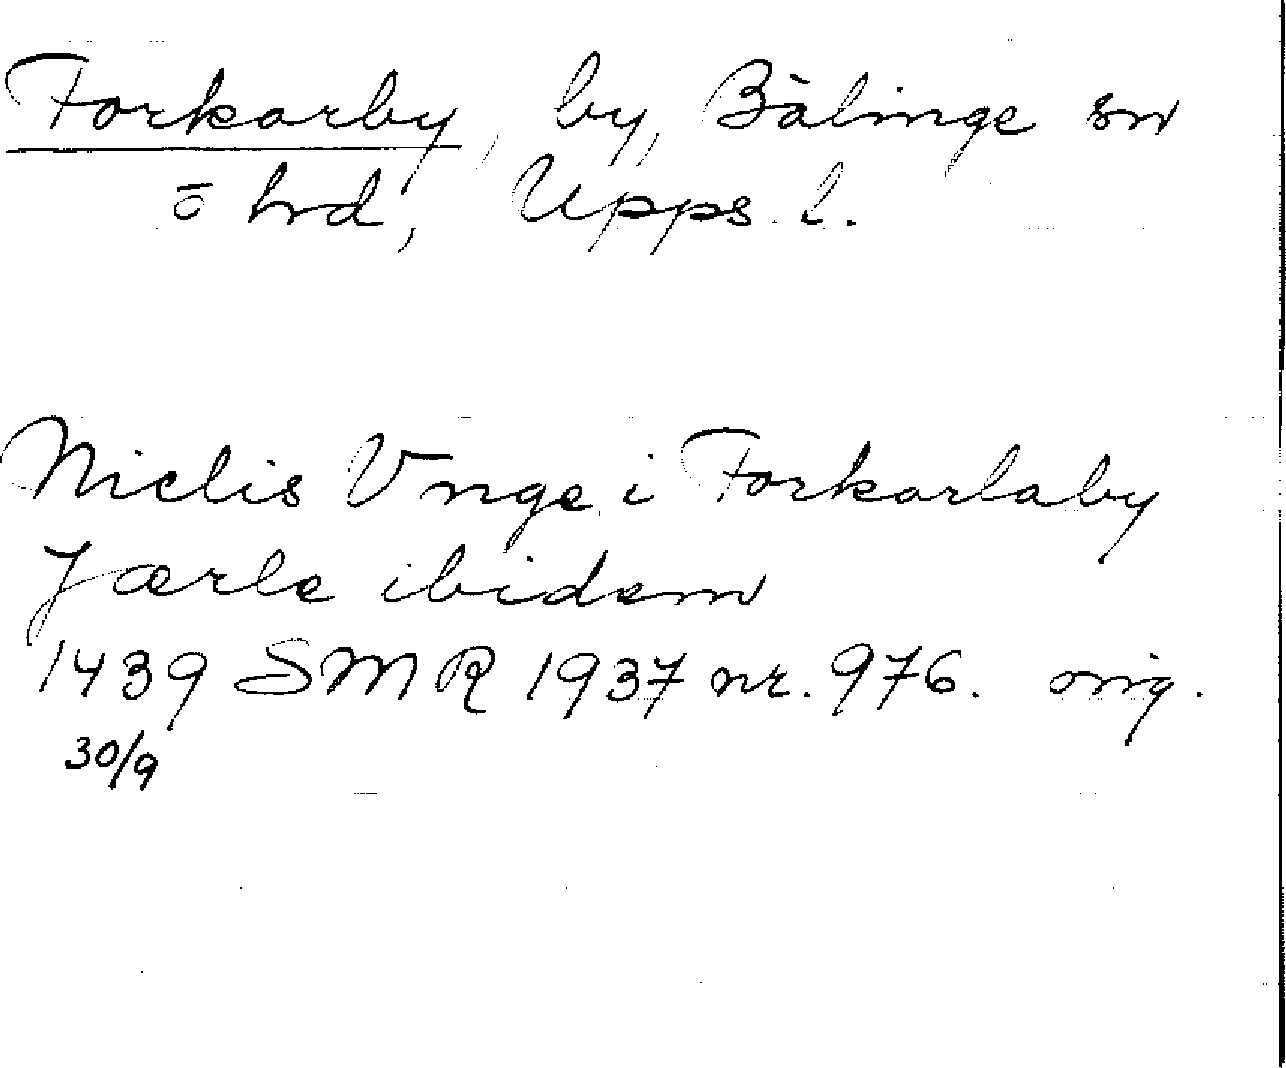 Forkarby, by, Bälinge sn
o hrd, Upps. l.
Niclis Vnge i Forkarlaby
Jærle ibidem
1439 SMR 1937 nr. 976. orig.
30/9